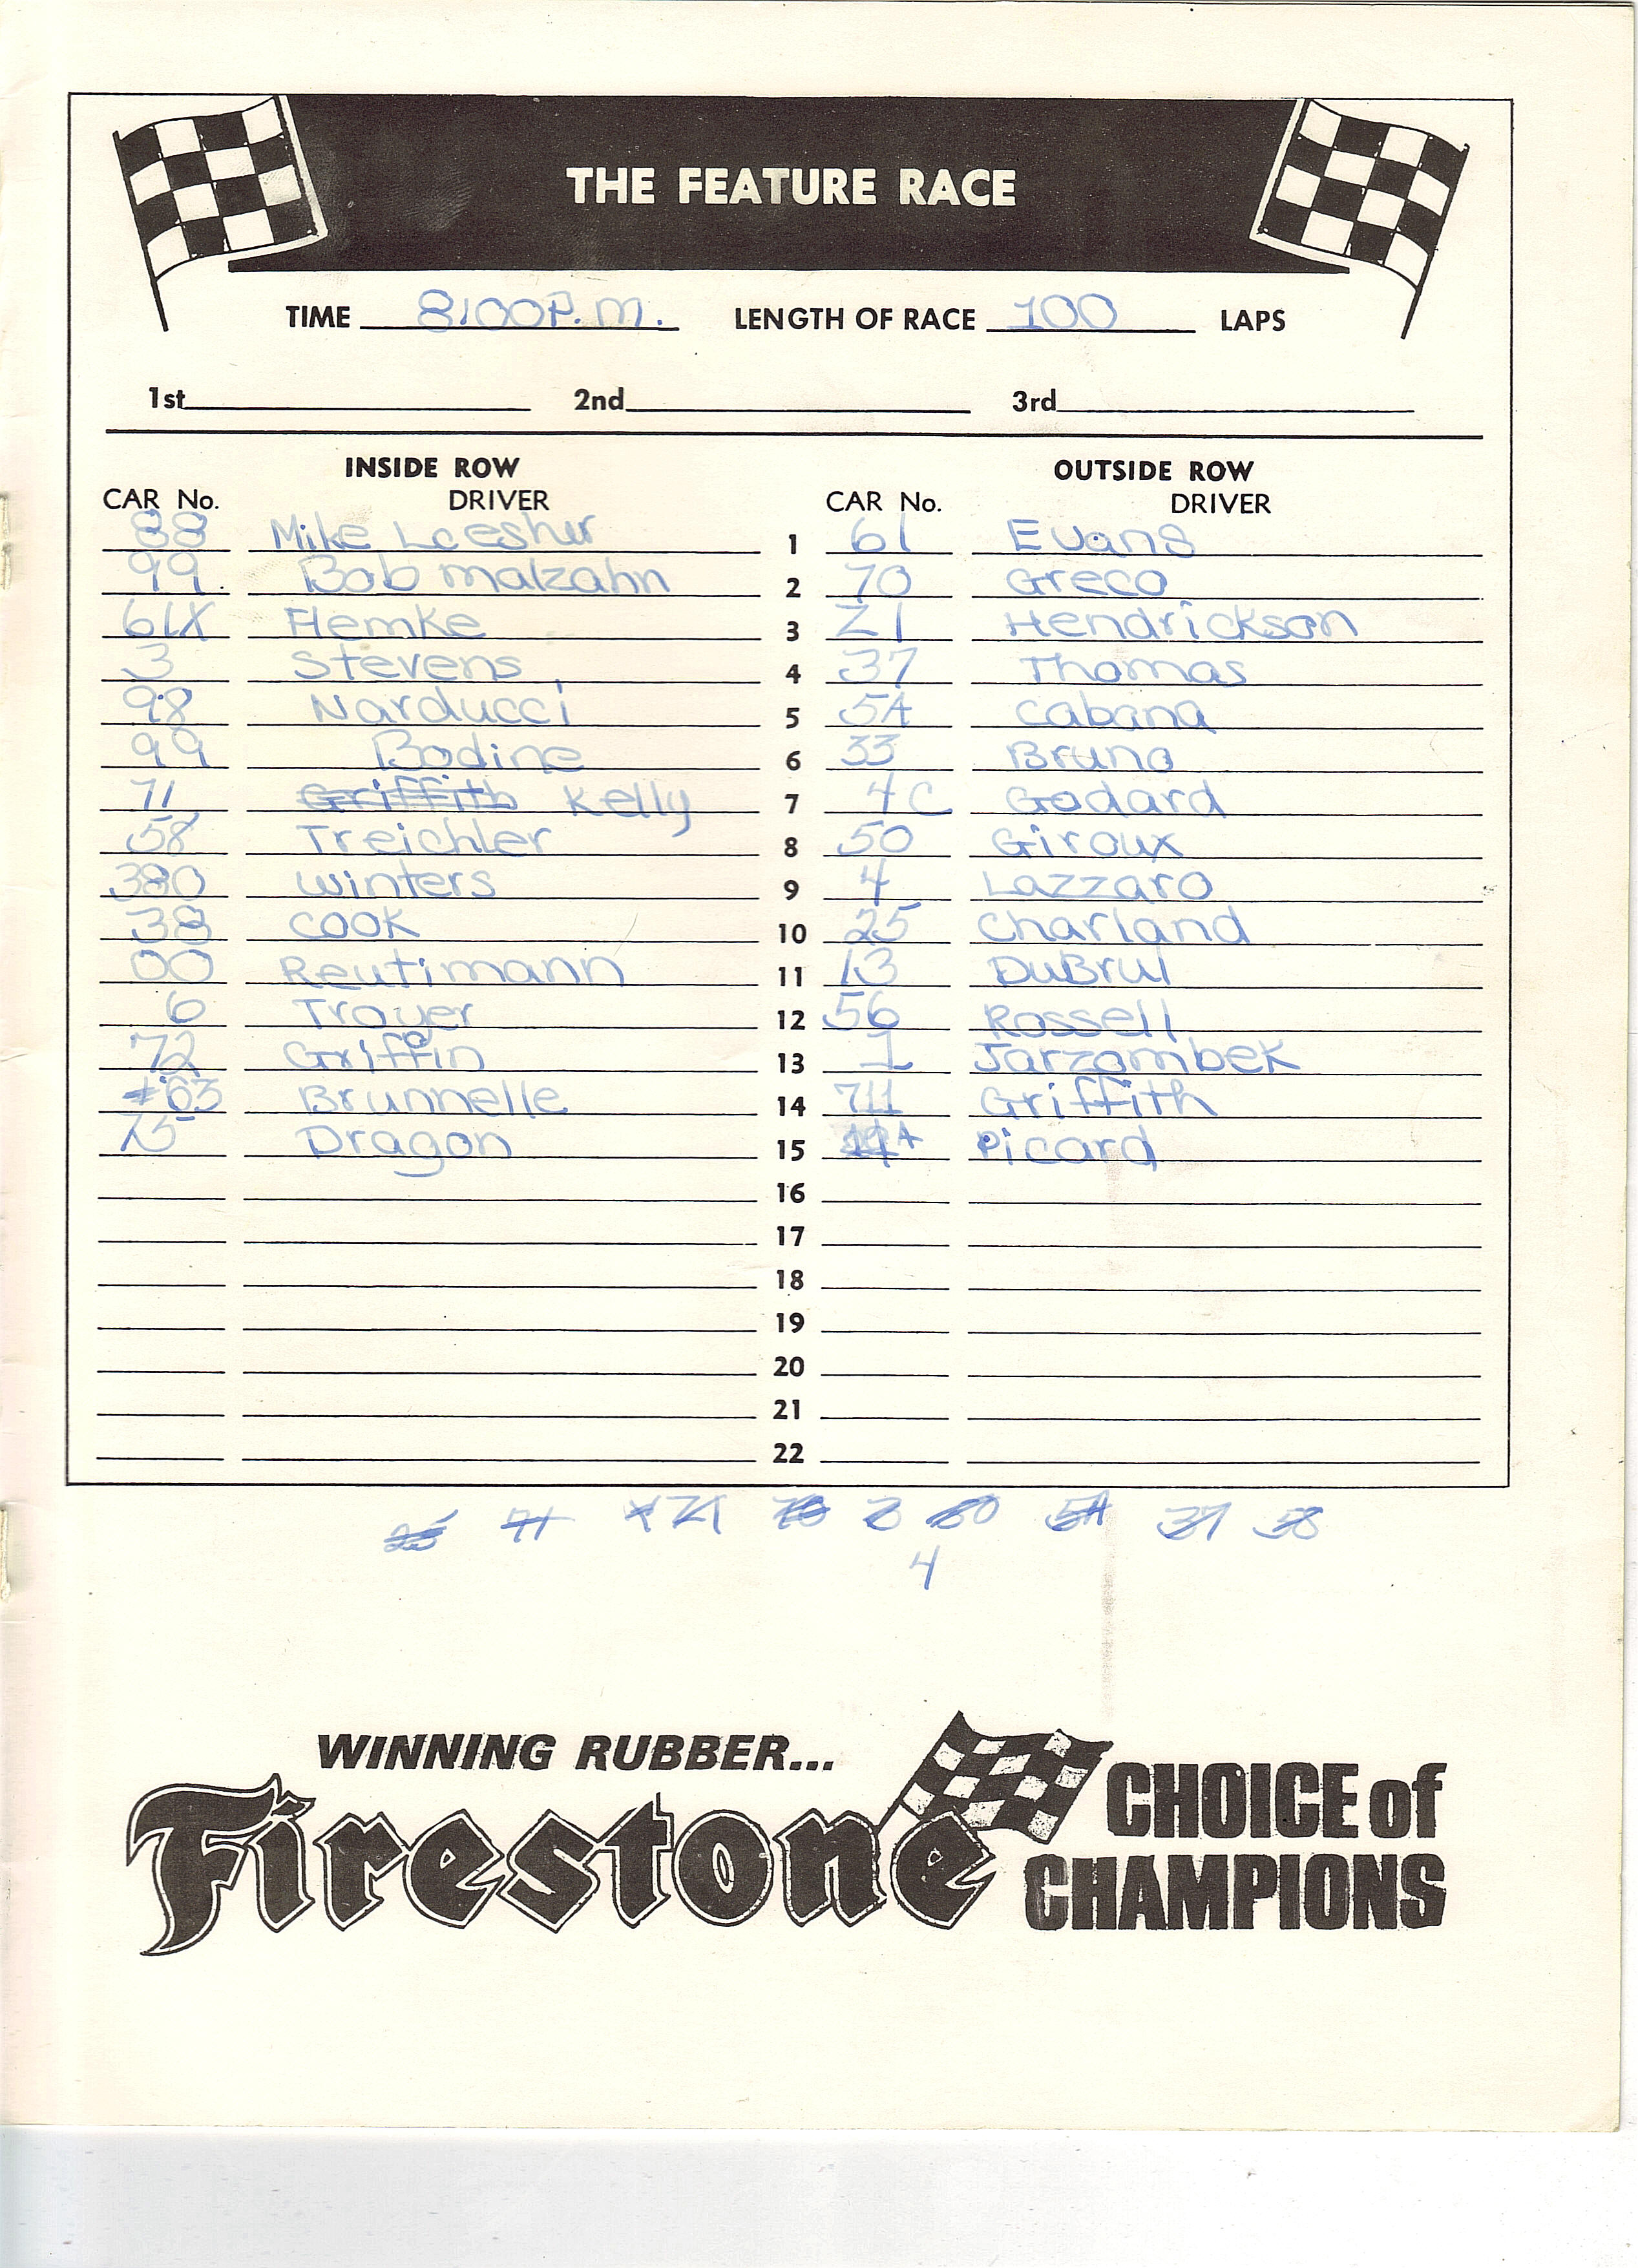 THE FEATURE RACE
TIME 8:00P.M. LENGTH OF RACE 100 LAPS
1st 2nd 3rd
INSIDE ROW OUTSIDE ROW
CAR No. DRIVER CAR No. DRIVER
88 Mike Loesher 1 61 Evans
99 Bob malzahn 2 70 Greco
61X Flemke 3 Z1 Hendrickson
3 Stevens 4 37 Thomas
98 Narducci 5 5A Cabana
99 Bodine 6 33 Bruno
71 Griffith Kelly 7 4C Godard
58 Treichler 8 50 Giroux
380 Winters 9 4 Lazzaro
38 COOK 10 25 Charland
00 Reutimann 11 13 DuBrul
6 Troyer 12 56 Rossell
72 Griffin 13 1 Jarzombek
#63 Brunnelle 14 711 Griffith
15 Dragon 15 Picard
16
17
18
19
20
21
22
25 71 Z1 5A 37 58
4
WINNING RUBBER...
Firestone CHOICE of
CHAMPIONS